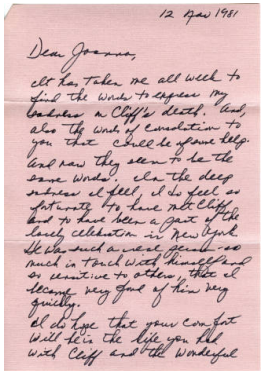 12 Nov 1981
Dear Joanna,
It has taken me all week to
find the words to express my
sadness in Cliff's death. And,
also the words of consolation to
you that could be of some help.
And now they seem to be the
same words. In the deep
sadness I feel, I do feel so
fortunate to have met Cliff
and to have been a part of the
lovely celebration in New York
He was such a real person - so
much in touch with himself and
so sensitive to others, that I
became very fond of him very
quickly.
I do hope that your comfort
will be in the life you had
with Cliff and the wonderful